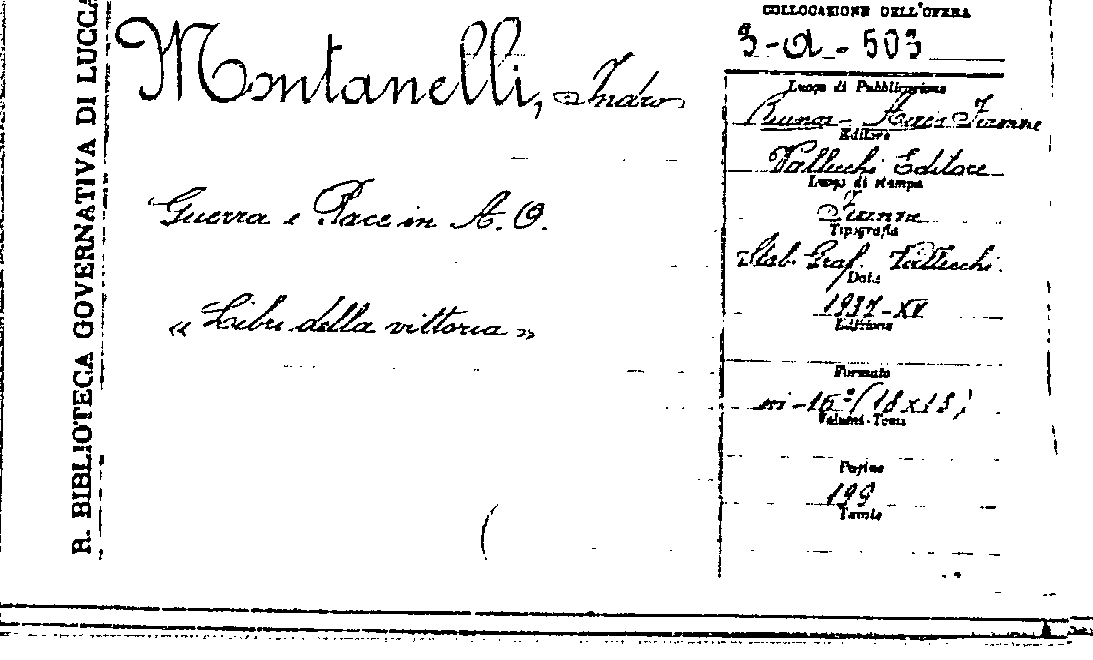 R. BIBLIOTECA GOVERNATIVA DI LUCCA
Montanelli, Indro
Guerra e Pace in A. O.
« Libri della vittoria »
COLLOCAZIONE DELL'OPERA
3-a-503
Luogo di Pubblicazione
Firenze
Editore
Vallecchi Editore
Luogo di stampa
Firenze
Tipografia
Stab. Graf. Vallecchi.
Data
1937-XV
Edizione
Formato
in-16° (18x13)
Volumi-Tomi
Pagine
199
Tavole